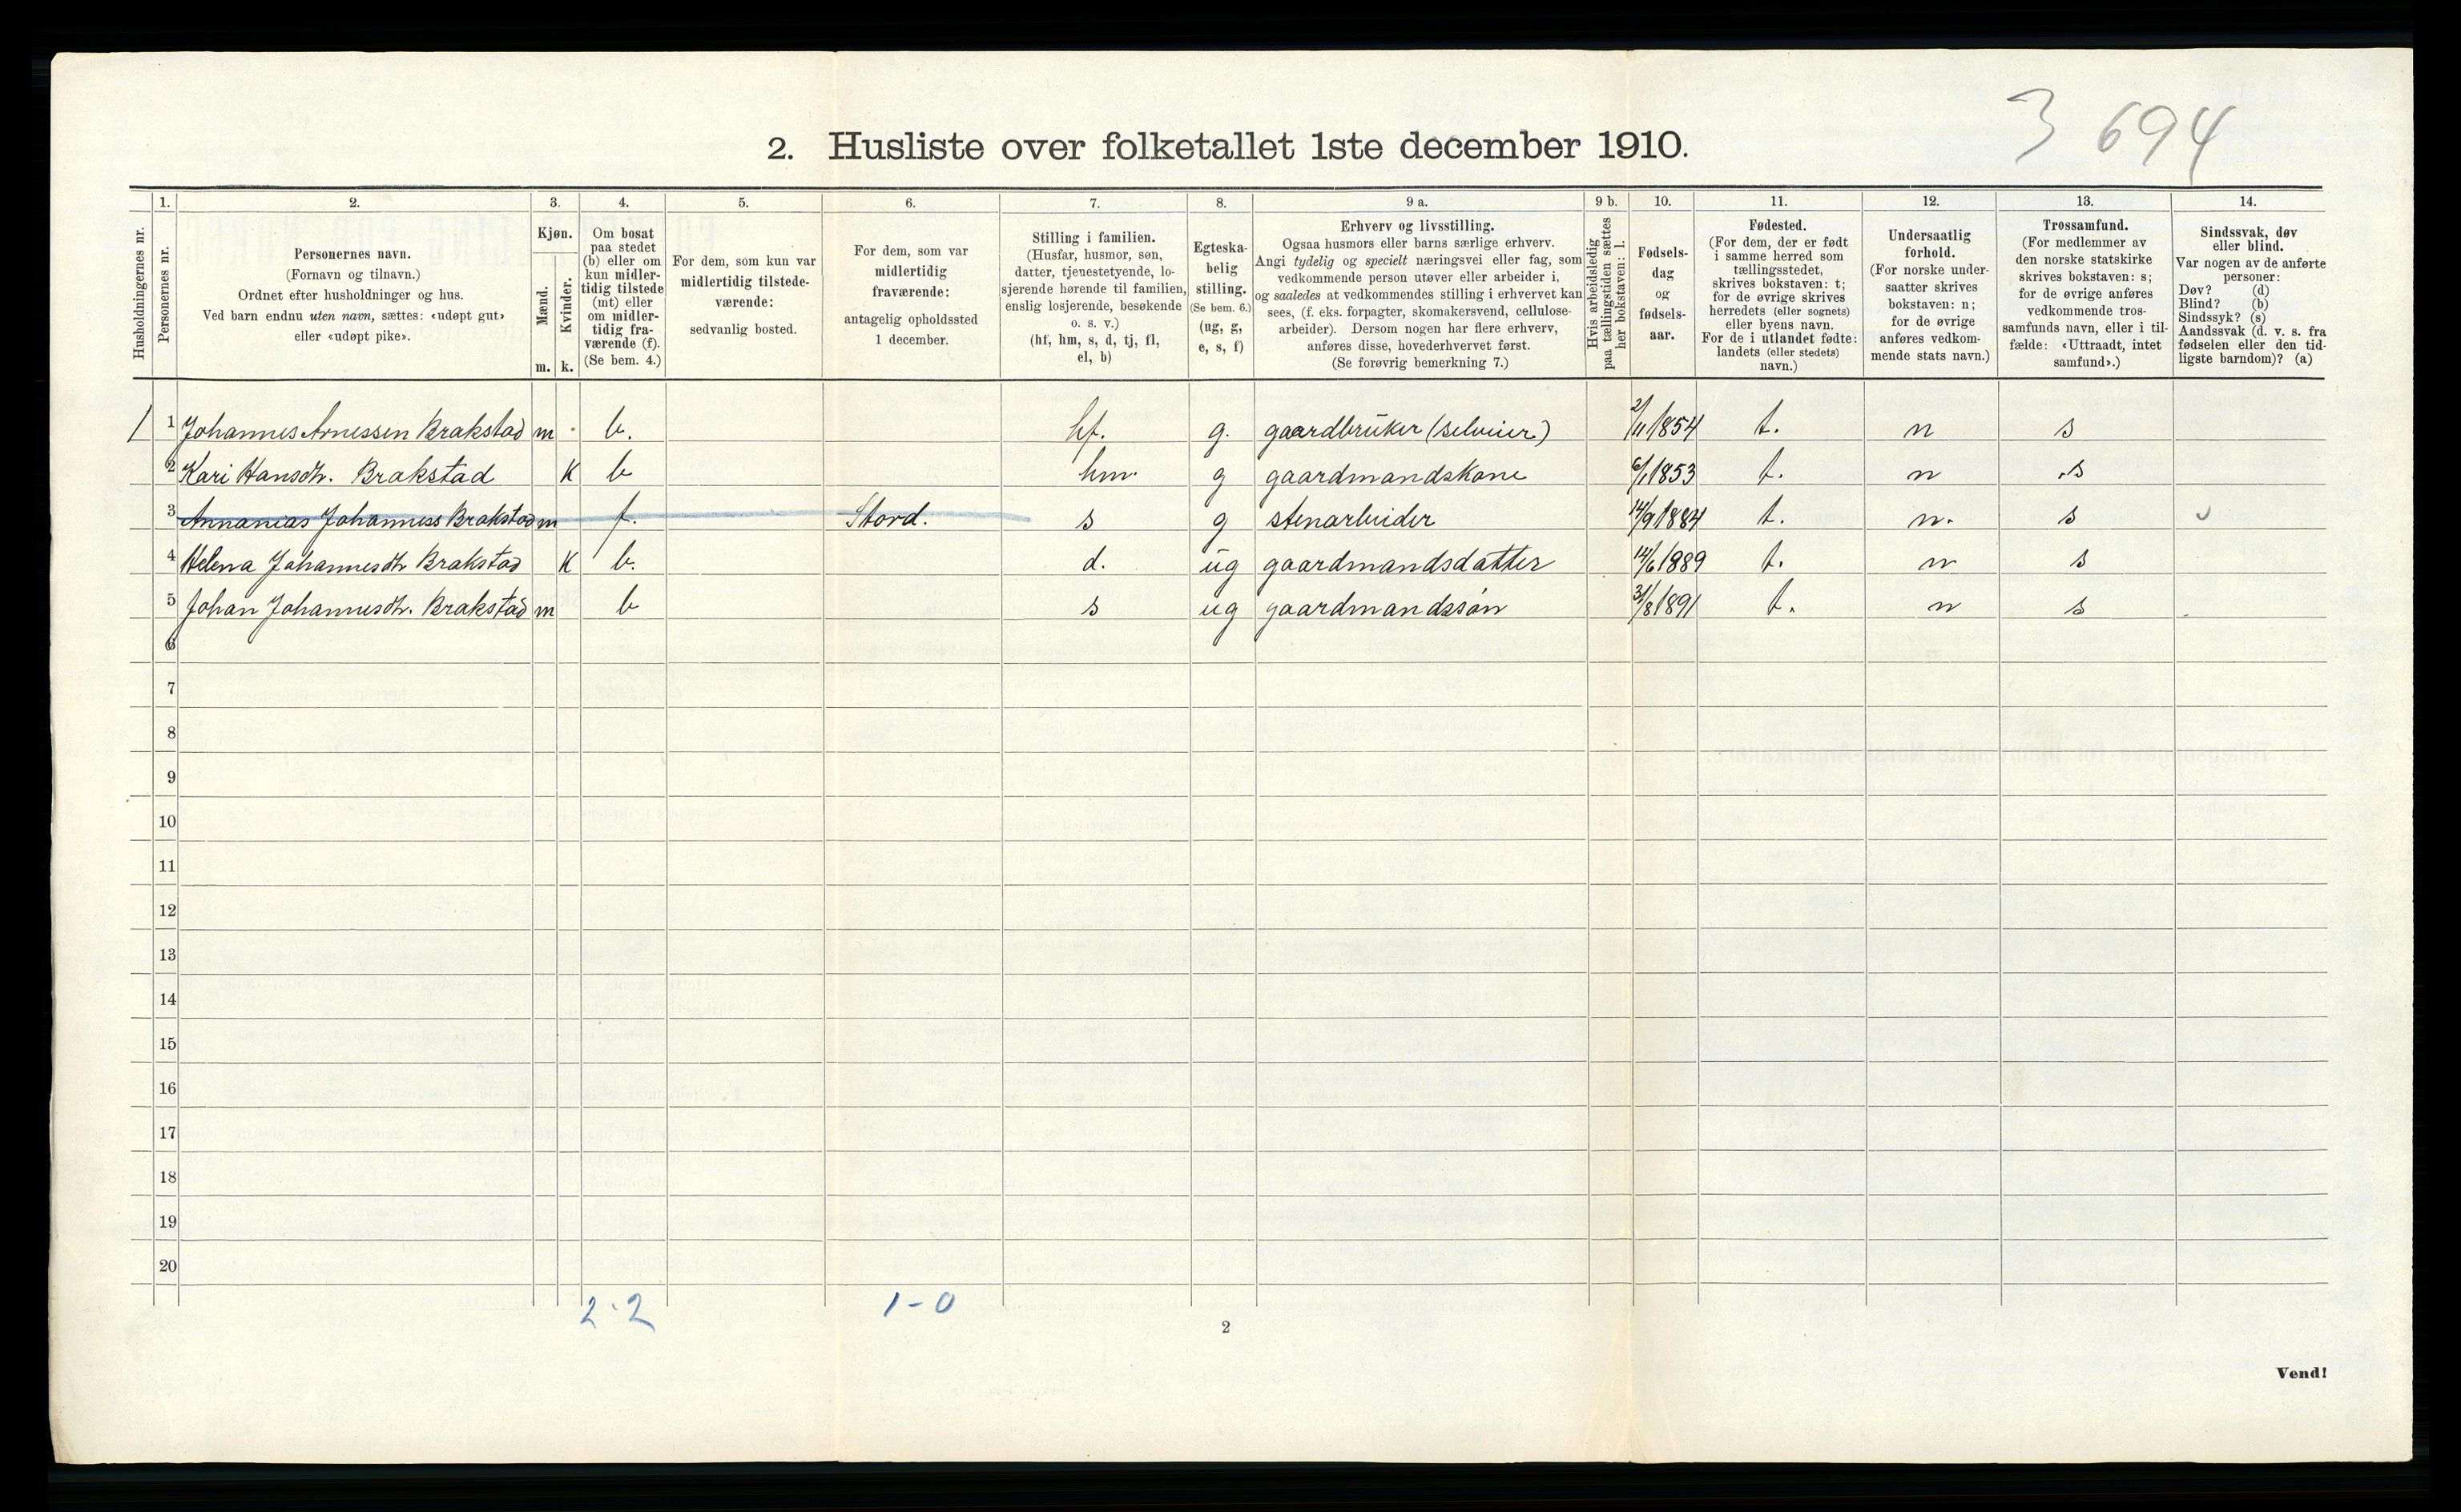 3 694
2. Husliste over folketallet 1ste december 1910.
Husholdningernes nr.
1.
Personernes nr.
2.
Personernes navn.
(Fornavn og tilnavn.)
Ordnet efter husholdninger og hus.
Ved barn endnu uten navn, sættes: «udøpt gut»
eller «udøpt pike».
3.
Kjøn.
Mænd.
Kvinder.
m. k.
4.
Om bosat
paa stedet
(b) eller om
kun midler-
tidig tilstede
(mt) eller
om midler-
tidig fra-
værende (f).
(Se bem. 4.)
5.
For dem, som kun var
midlertidig tilstede-
værende:
sedvanlig bosted.
6.
For dem, som var
midlertidig
fraværende:
antagelig opholdssted
1 december.
7.
Stilling i familien.
(Husfar, husmor, søn,
datter, tjenestetyende, lo-
sjerende hørende til familien,
enslig losjerende, besøkende
o. s. v.)
(hf, hm, s, d, tj, fl,
el, b)
8.
Egteska-
belig
stilling.
(Se bem. 6.)
(ug, g,
e, s, f)
9 a.
Erhverv og livsstilling.
Ogsaa husmors eller barns særlige erhverv.
Angi tydelig og specielt næringsvei eller fag, som
vedkommende person utøver eller arbeider i,
og saaledes at vedkommendes stilling i erhvervet kan
sees, (f. eks. forpagter, skomakersvend, cellulose-
arbeider). Dersom nogen har flere erhverv,
anføres disse, hovederhvervet først.
(Se forøvrig bemerkning 7.)
9 b.
Hvis arbeidsledig
paa tællingstiden sættes
her bokstaven: l.
10.
Fødsels-
dag
og
fødsels-
aar.
11.
Fødested.
(For dem, der er født
i samme herred som
tællingsstedet,
skrives bokstaven: t;
for de øvrige skrives
herredets (eller sognets)
eller byens navn.
For de i utlandet fødte:
landets (eller stedets)
navn.)
12.
Undersaatlig
forhold.
(For norske under-
saatter skrives
bokstaven: n;
for de øvrige
anføres vedkom-
mende stats navn.)
13.
Trossamfund.
(For medlemmer av
den norske statskirke
skrives bokstaven: s;
for de øvrige anføres
vedkommende tros-
samfunds navn, eller i til-
fælde: «Uttraadt, intet
samfund».)
14.
Sindssvak, døv
eller blind.
Var nogen av de anførte
personer:
Døv? (d)
Blind? (b)
Sindssyk? (s)
Aandssvak (d. v. s. fra
fødselen eller den tid-
ligste barndom)? (a)
1 1 Johannes Arnessen Brakstad m b. hf. g. gaardbruker (selveier) 2/11 1854 t. n s
2 Kari Hansdtr. Brakstad k b hm. g gaardmandskone 6/1 1853 t. n s
3 Annanias Johanness Brakstad m f. Stord. s g stenarbeider 14/9 1884 t. n. s
4 Helena Johannesdtr Brakstad k b. d. ug gaardmandsdatter 14/6 1889 t. n s
5 Johan Johannesdtr. Brakstad m b s ug gaardmandssøn 31/8 1891 t. n s
6
7
8
9
10
11
12
13
14
15
16
17
18
19
20
2-2 1-0
2
Vend!